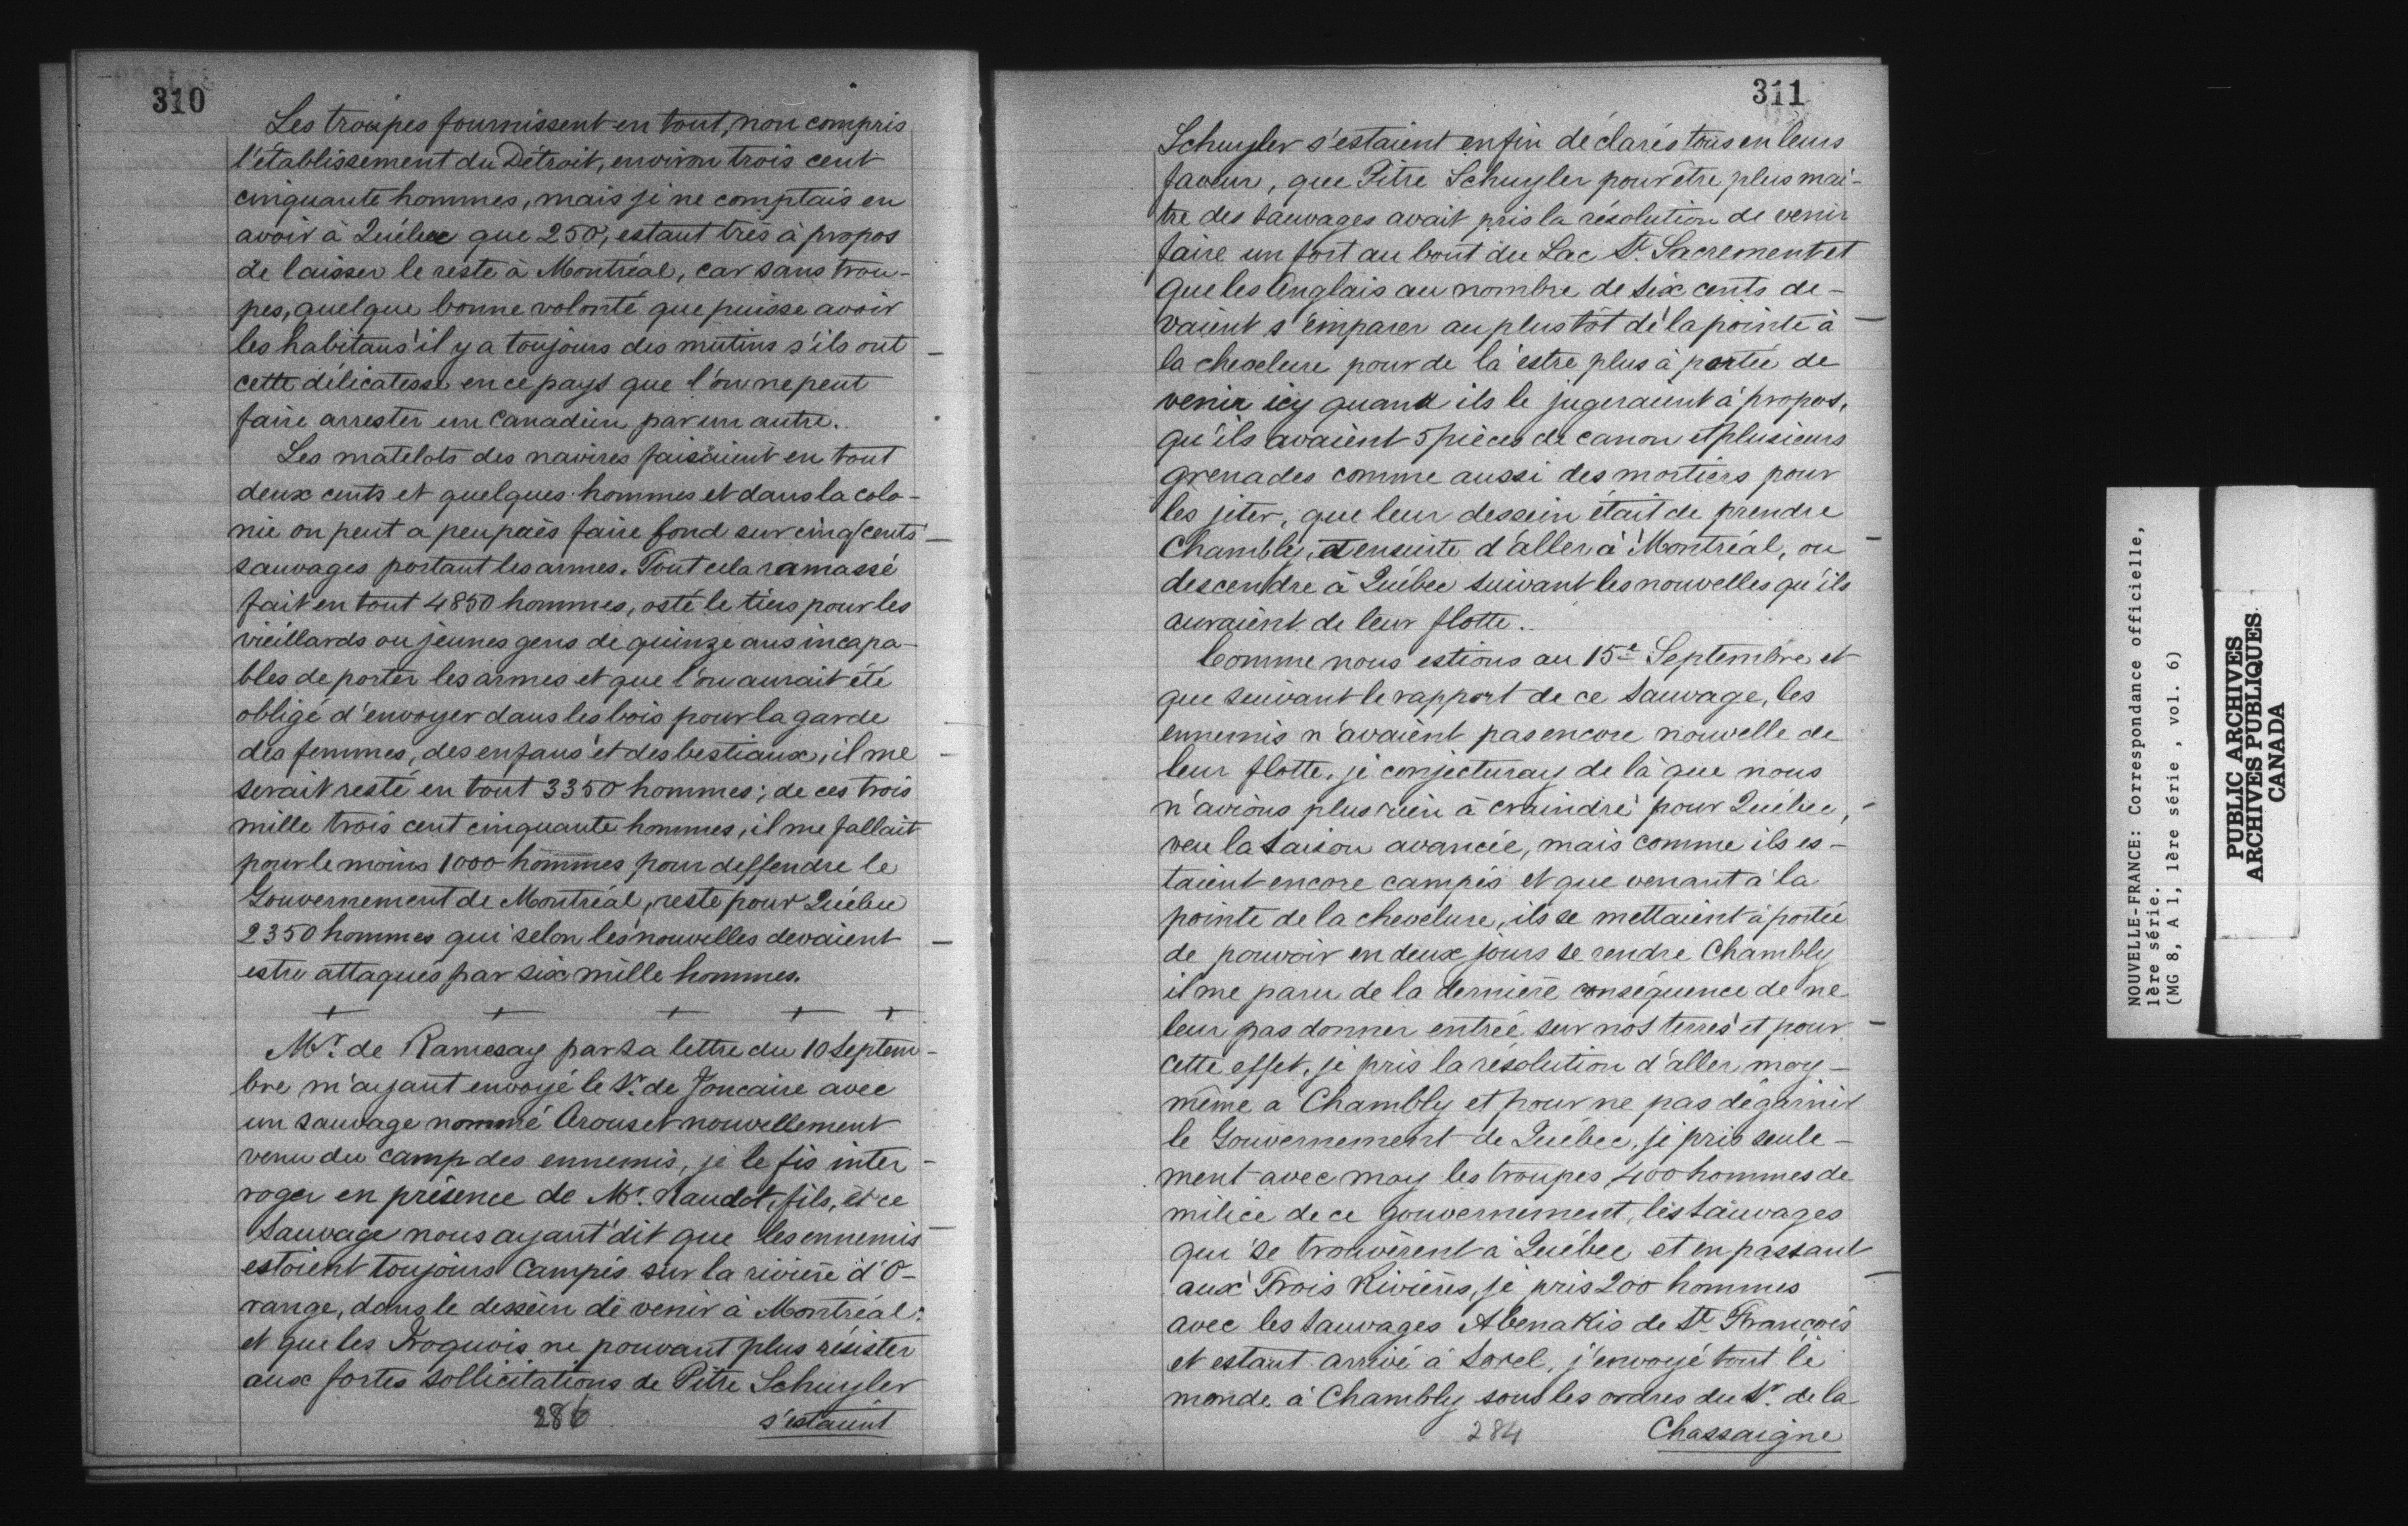 310
Les troupes fournissent en tout, non compris
l'établissement du Détroit, environ trois cent
cinquante hommes, mais je ne comptais en
avoir à Québec que 250, estant très à propos
de laisser le reste à Montréal, car sans trou-
pes, quelque bonne volonté que puisse avoir
les habitans il y a toujours des mutins s'ils ont
cette délicatesse en ce pays que l'on ne peut
faire arrester un Canadien par un autre.
Les matelots des navires faisaient en tout
deux cents et quelques hommes et dans la colo-
nie on peut a peu près faire fond sur cinq cents
sauvages portant les armes. Tout cela ramassé
fait en tout 4850 hommes, osté le tiers pour les
vieillards ou jeunes gens de quinze ans incapa-
bles de porter les armes et que l'on aurait été
obligé d'envoyer dans les bois pour la garde
des femmes, des enfans et des bestiaux, il me
serait resté en tout 3350 hommes; de ces trois
mille trois cent cinquante hommes, il me fallait
pour le moins 1000 hommes pour deffendre le
Gouvernement de Montréal, reste pour Québec
2350 hommes qui selon les nouvelles devaient
estre attaqués par six mille hommes.
+ + + + +
Mr. de Ramesay par sa lettre du 10 Septem-
bre m'ayant envoyé le Sr. de Joncaire avec
un sauvage nommé Arouset nouvellement
venu du camp des ennemis, je le fis inter-
roger en présence de Mr. Raudot, fils, et ce
Sauvage nous ayant dit que les ennemis
estoient toujours campés sur la rivière d'O-
range, dans le dessein de venir à Montréal:
et que les Iroquois ne pouvant plus résister
aux fortes sollicitations de Pitre Schuyler
286
s'estaient
311
Schuyler s'estaient enfin déclarés tous en leurs
faveur, que Pitre Schuyler pour être plus maî-
tre des sauvages avait pris la résolution de venir
faire un fort au bout du Lac St. Sacrement et
que les Anglais au nombre de six cents de-
vaient s'emparer au plus tôt de la pointe à
la chevelure pour de là estre plus à portée de
venir icy quand ils le jugeraient à propos,
qu'ils avaient 5 pièces de canon et plusieurs
grenades comme aussi des mortiers pour
les jeter, que leur dessein était de prendre
Chambly, et ensuite d'aller à Montréal, ou
descendre à Québec suivant les nouvelles qu'ils
auraient de leur flotte.
Comme nous estions au 15e Septembre et
que suivant le rapport de ce Sauvage, les
ennemis n'avaient pas encore nouvelle de
leur flotte, je conjecturay de là que nous
n'avions plus rien à craindre pour Québec,
veu la saison avancée, mais comme ils es-
taient encore campés et que venant à la
pointe de la chevelure, ils se mettaient à portée
de pouvoir en deux jours se rendre Chambly
il me paru de la dernière conséquence de ne
leur pas donner entrée sur nos terres et pour
cette effet, je pris la résolution d'aller moy-
même a Chambly et pour ne pas dégarnir
le Gouvernement de Québec, je pris seule-
ment avec moy les troupes, 400 hommes de
milice de ce gouvernement, les sauvages
qui se trouvèrent à Québec et en passant
aux Trois Rivières, je pris 200 hommes
avec les sauvages Abenakis de St. François
et estant arrivé à Sorel, j'envoyé tout le
monde à Chambly sous les ordres du Sr. de la
284
Chassaigne
NOUVELLE-FRANCE: Correspondance officielle,
1ère série.
(MG 8, A 1, 1ère série , vol. 6)
PUBLIC ARCHIVES
ARCHIVES PUBLIQUES
CANADA